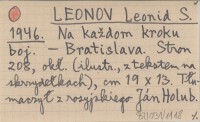 LEONOV Leonid S.
1946. Na každom kroku
boj. – Bratislava. Stron
208, okł. (ilustr., z tekstem na
skrzydełkach), cm 19 x 13. Tłu-
maczył z rosyjskiego Ján Holub.